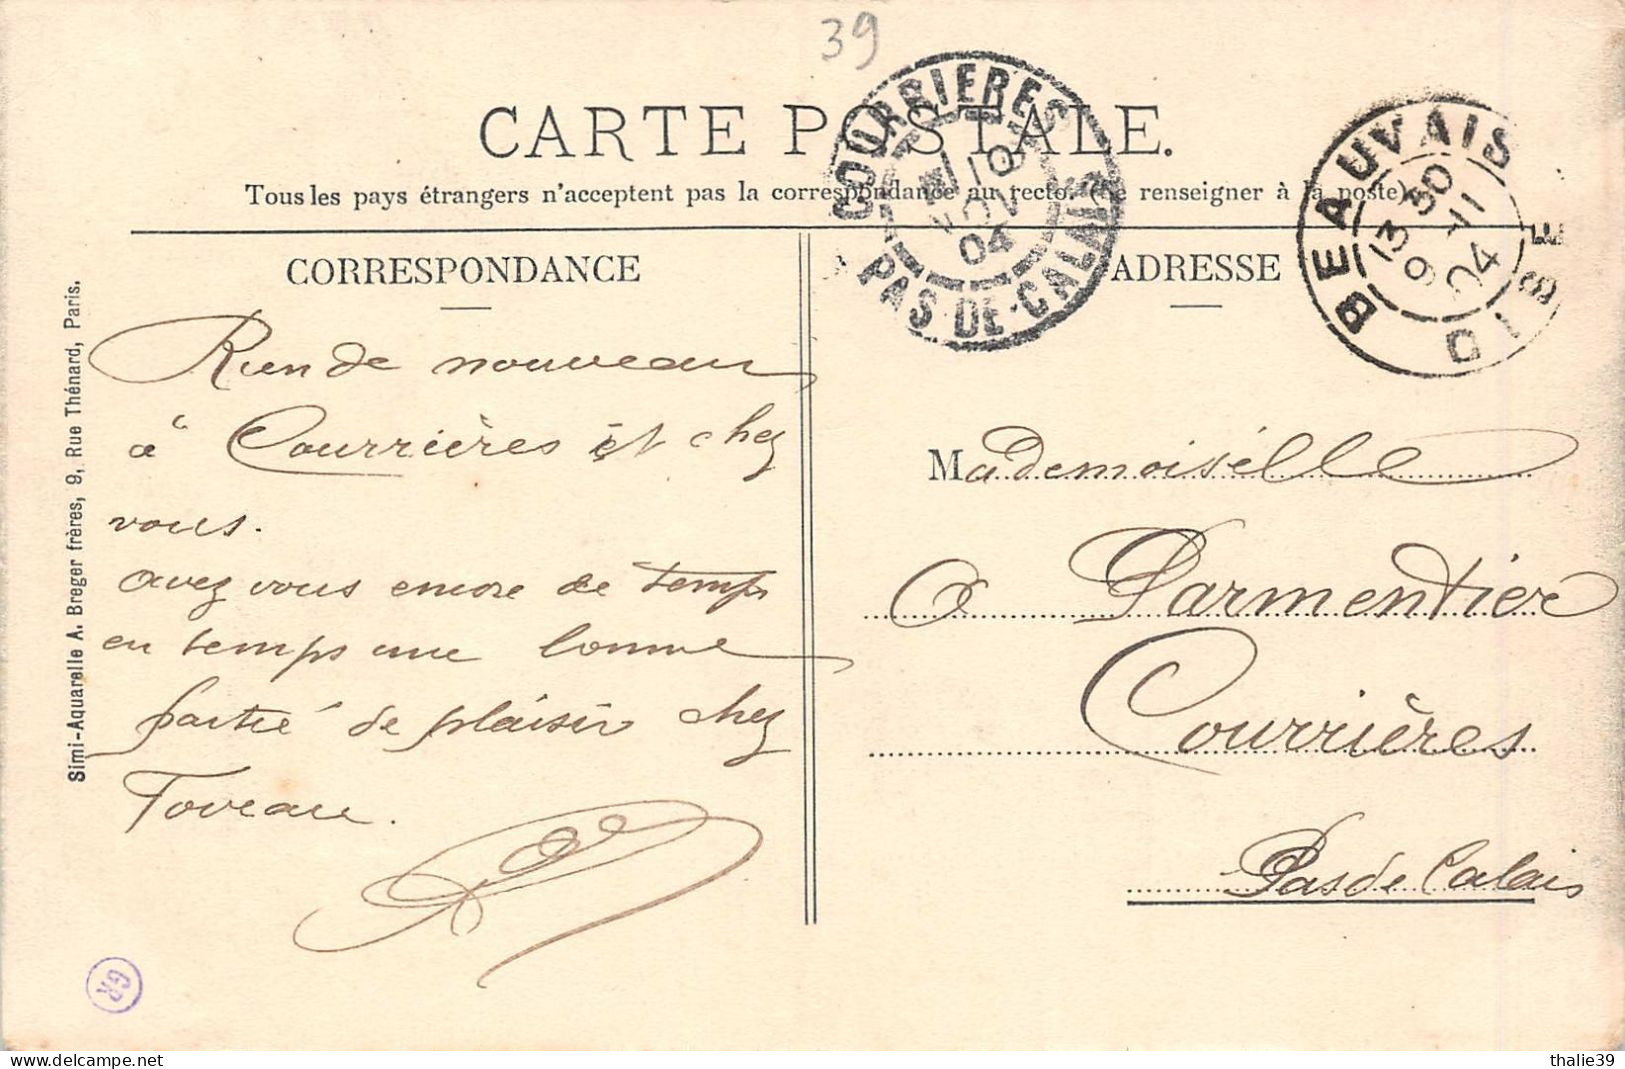 39
CARTE POSTALE.
Tous les pays étrangers n'acceptent pas la correspondance au recto. (Se renseigner à la poste)
COURRIERES
10
NOV
04
PAS-DE-CALAIS
BEAUVAIS
13 30
9 - 11
04
OISE
CORRESPONDANCE
Rien de nouveau
à Courrières et chez
vous.
avez vous encore de temps
en temps une bonne
partie de plaisir chez
Toveau.
ADRESSE
Mademoiselle
Parmentier
Courrières
Pas de Calais
Simi-Aquarelle A. Breger frères, 9, Rue Thénard, Paris.
thalie39